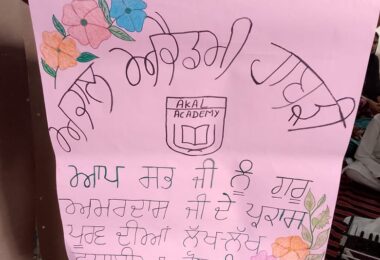 ਅਕਾਲ ਅਕੈਡਮੀ
AKAL
ACADEMY
ਆਪ ਸਭ ਜੀ ਨੂੰ ਗੁਰੂ
ਅਮਰਦਾਸ ਜੀ ਦੇ ਪ੍ਰਕਾਸ਼
ਪੁਰਬ ਦੀਆਂ ਲੱਖ-ਲੱਖ